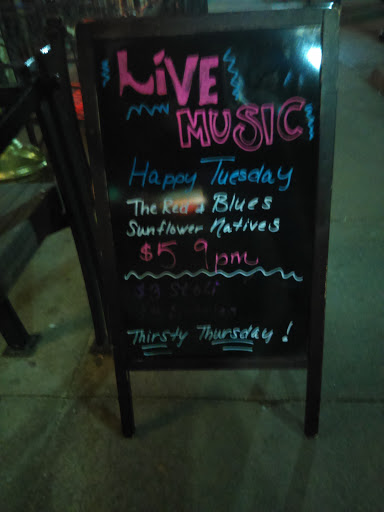 LiVE
MUSIC
Happy Tuesday
The Red & Blues
Sunflower Natives
$5 9pm
$3 Stoli
Thirsty Thursday!